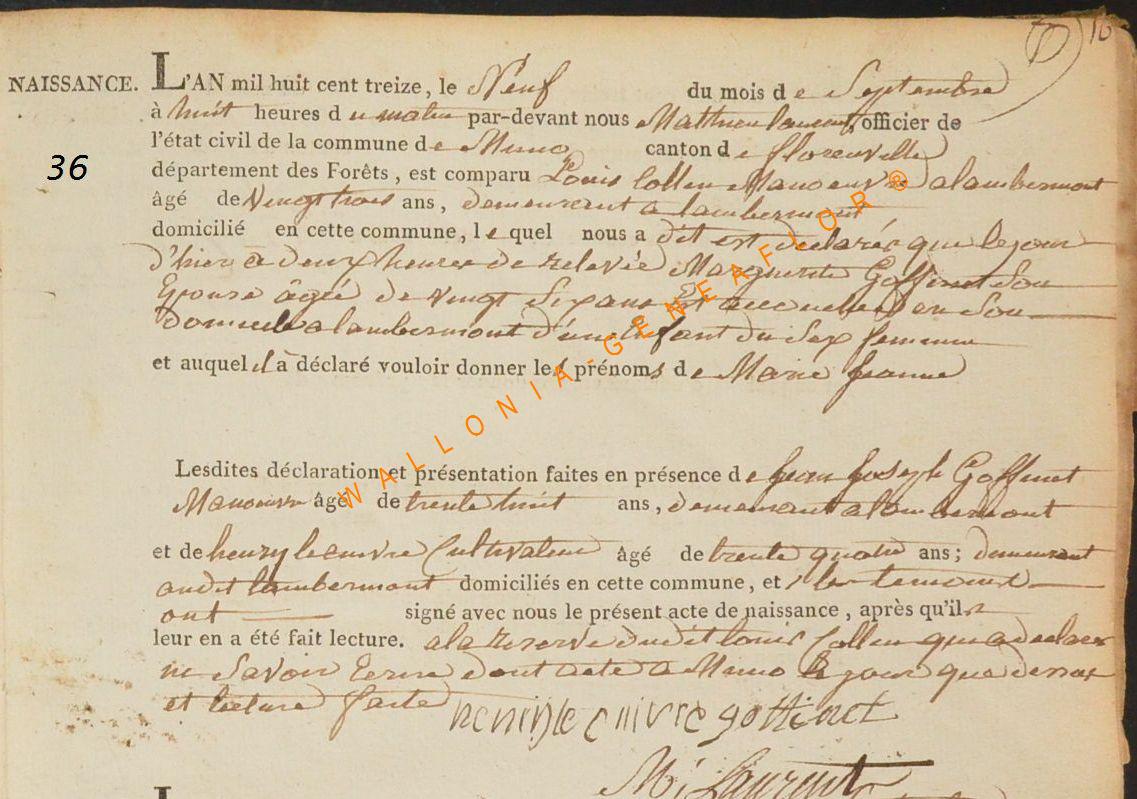 10
NAISSANCE. L'AN mil huit cent treize, le Neuf du mois de Septembre
à huit heures du matin par-devant nous Matthieu laurent, officier de
l'état civil de la commune de Muno canton de florenville
36
département des Forêts, est comparu Louis Collen Manoeuvre a lambermont
âgé de Vingt trois ans, demeurant a lambermont
domicilié en cette commune, lequel nous a dit et declarée que le jour
d'hier a deux heures de relevée Marguerite Goffinet Son
Epouse âgée de vingt Six ans Est accouchée en Son
domicile a lambermont d'un Enfant du Sex feminin
et auquel il à déclaré vouloir donner les prénoms de Marie Jeanne
WALLONIA-GENEAFLOR®
Lesdites déclaration et présentation faites en présence de Jean Joseph Goffinet
Manoeuvre âgé de trente huit ans, demeurant a lambermont
et de henry lecuivre Cultivateur âgé de trente quatre ans; demeurant
audit lambermont domiciliés en cette commune, et les temoins
ont signé avec nous le présent acte de naissance, après qu'il
leur en a été fait lecture. a la reserve dudit louis Collen qui a declaré
ne Savoir Ecrire dont acte a Muno le jour que dessus
et lecture faite henri le cuivre goffinet
M: Laurent
L